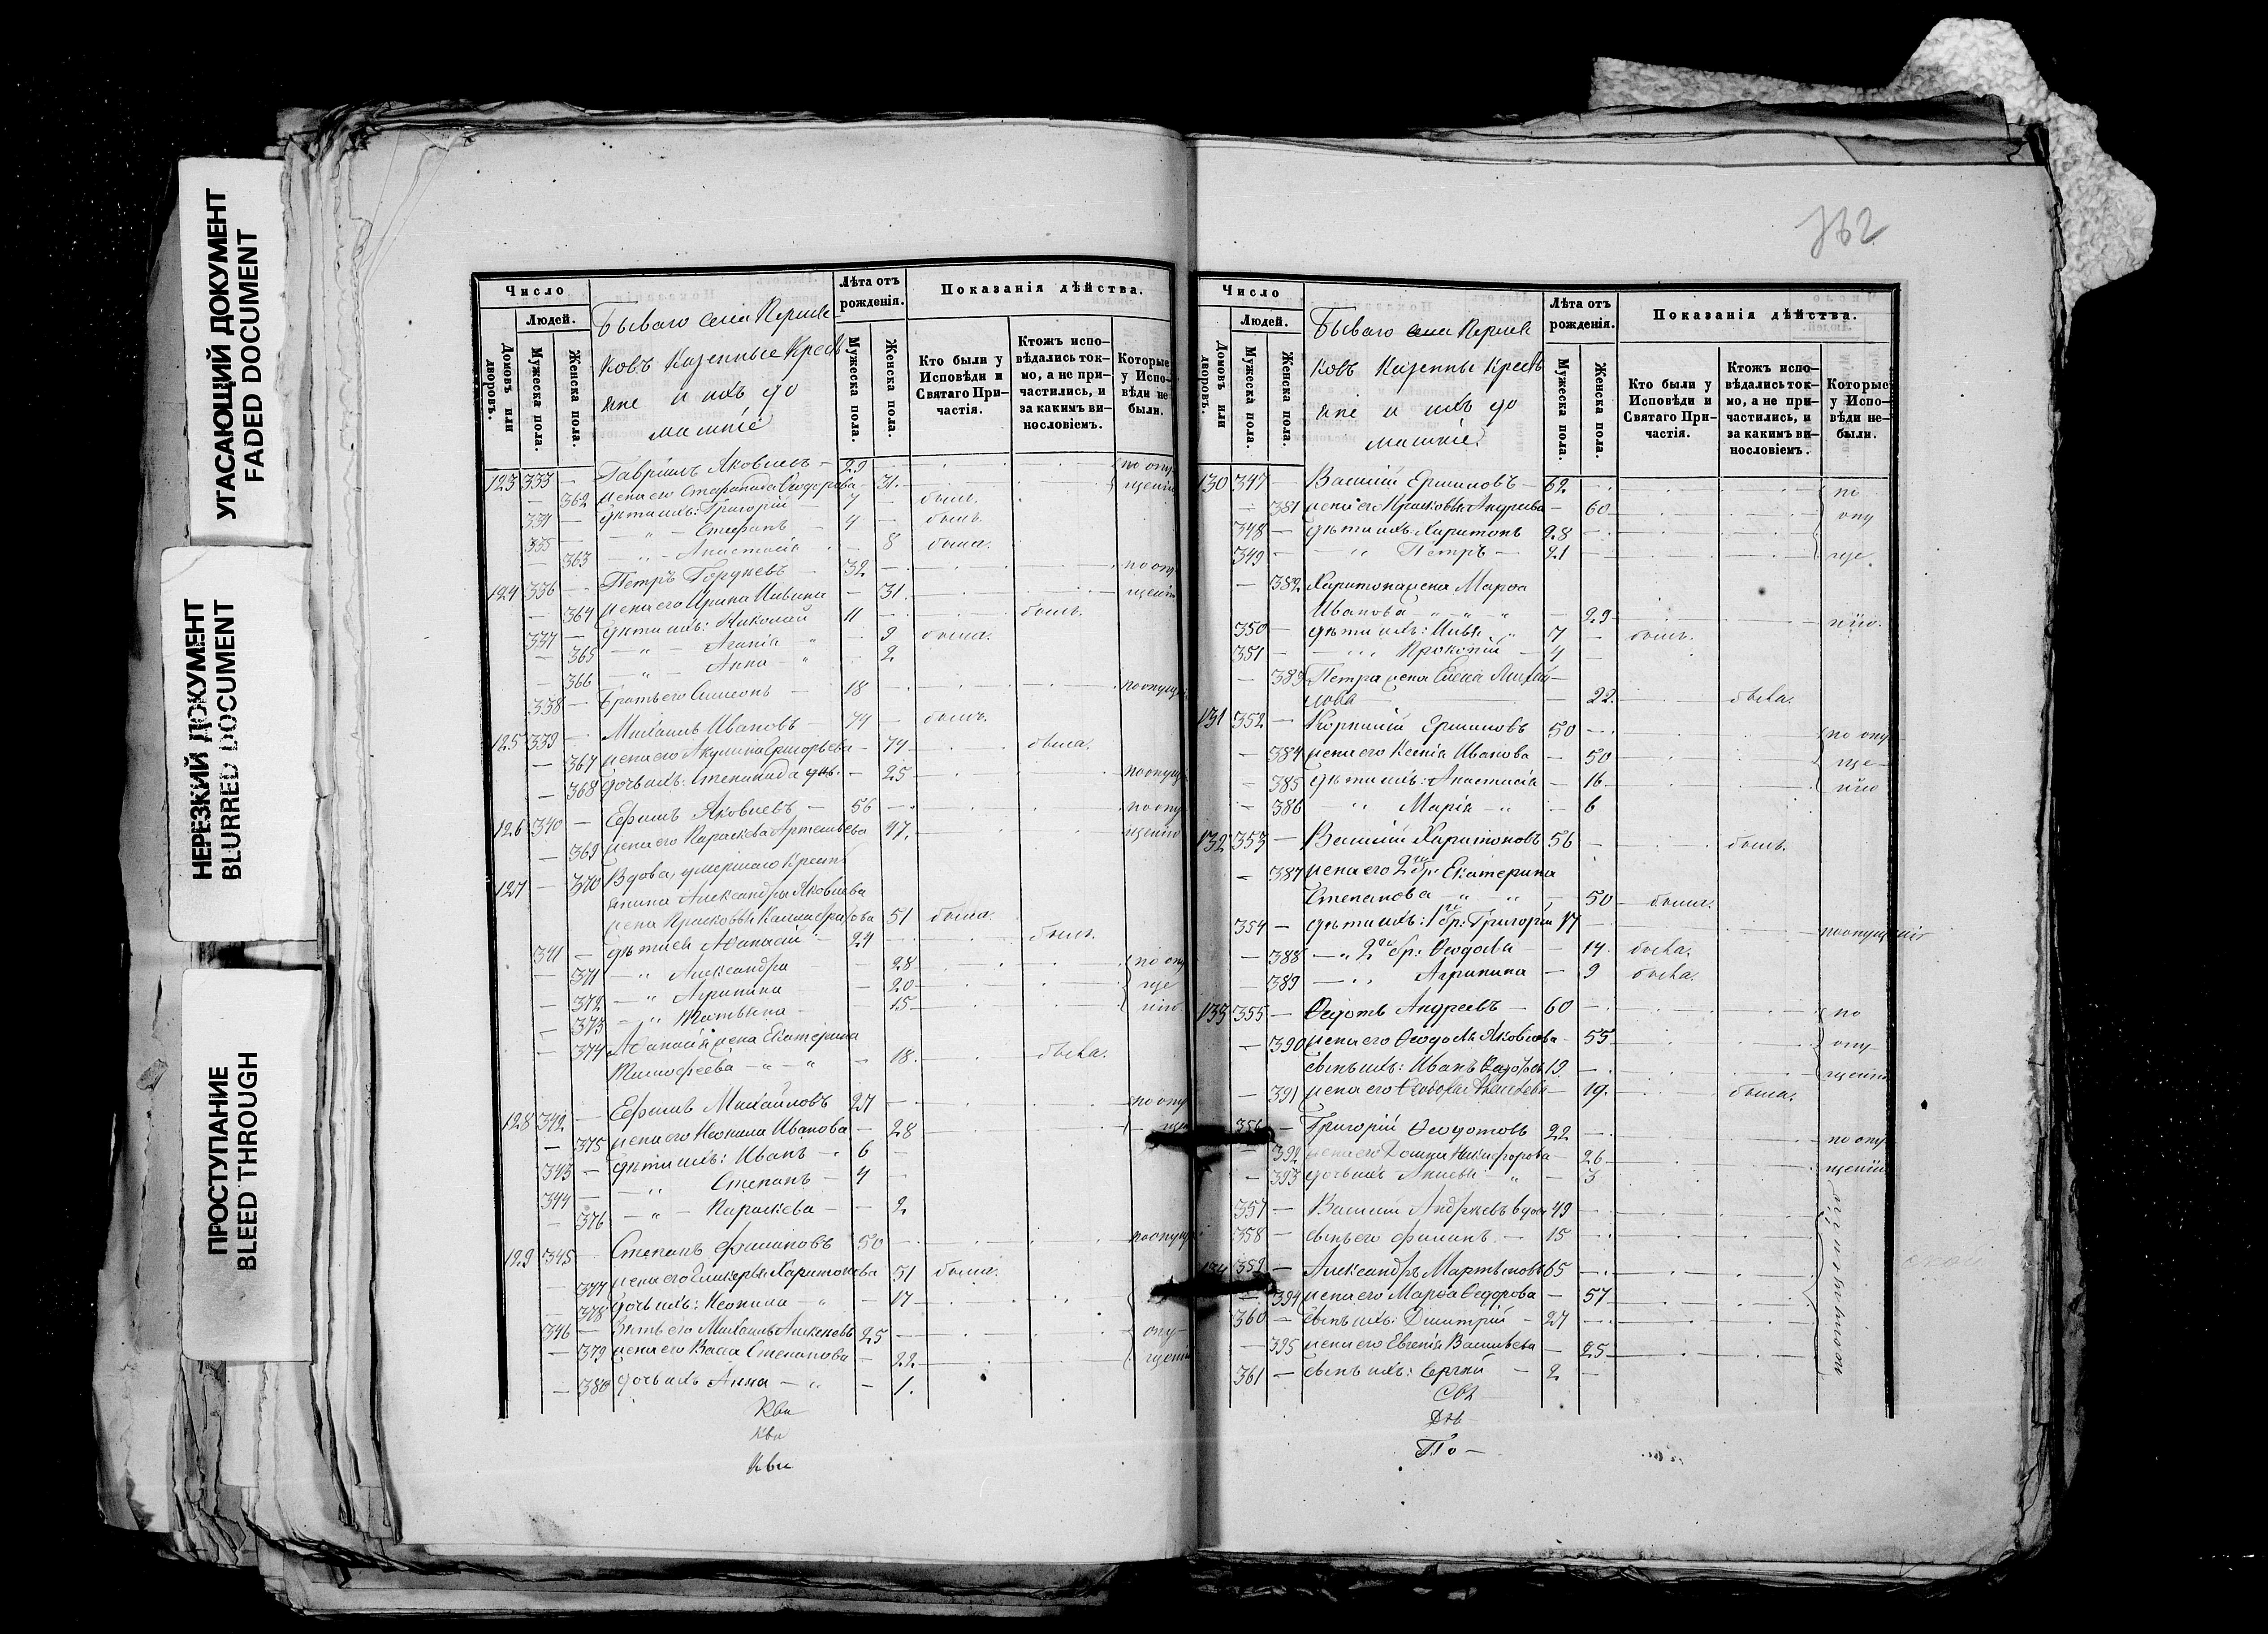 УГАСАЮЩИЙ ДОКУМЕНТ
FADED DOCUMENT
НЕРЕЗКИЙ ДОКУМЕНТ
BLURRED DOCUMENT
ПРОСТУПАНИЕ
BLEED THROUGH
Число
Людей.
Домовъ или дворовъ.
Мужеска пола.
Женска пола.
Бываго села
ковъ Казенные Крестъ
яне и ихъ до
машніе
Лѣта отъ рожденія.
Мужеска пола.
Женска пола.
Показанія дѣйства.
Кто были у Исповѣди и Святаго Причастія.
Ктожъ исповѣдались токмо, а не причастились, и за какимъ винословіемъ.
Которые у Исповѣди не были.
123 333 — Гавріилъ Яковлевъ — 29 по опу
— 362 жена его Стефанида Ѳеодорова — 31. щенію
334 — дѣти ихъ: Григорій — 7 — былъ.
335 — „ — Стефанъ — 4 — былъ.
— 363 — „ — Анастасія — 8 была.
124 336 — Петръ 32 — по опу
— 364 жена его Ирина — 31. щенію
337 — дѣти ихъ: Николай 11 — былъ.
— 365 — „ — Агапія „ 9 была.
— 366 — „ — Анна — „ 2
338 — Братъ его Симеонъ — 18 по опущ
125 339 — Михаилъ Ивановъ — 74 — былъ.
— 367 жена его Акулина Григорьева — 74 была.
— 368 дочь ихъ: Степанида дѣв. — 25 по опущ
126 340 — Ефимъ Яковлевъ — 56 по опу
— 369 жена его Параскева Артемьева 47. щенію
127 — 370 Вдова, умершаго Крестъ
янина Александра Яковлева
жена Прасковья 51 была.
341 — дѣти ея Аѳанасій — 24 былъ.
— 371 — „ Александра — 28 по опу
— 372 — „ Агрипина — 20 ще
— 373 — „ Татьяна — 15 нію.
— 374 Аѳанасія жена Екатерина
Тимофеева — „ — „ — 18. была.
128 342 — Ефимъ Михайловъ 27 — по опу
— 375 жена его Неонила Иванова — 28 ще
343 — дѣти ихъ: Иванъ — 6 —
344 — „ Степанъ — 4 —
— 376 — „ — Параскева — 2
129 345 — Степанъ Филиповъ 50 — по опущ
— 377 жена его Гликерья Харитонова 51 была.
— 378 дочь ихъ: Неонила — „ — 17
346 — Зять его Михаилъ 25 — опу
— 379 жена его Васса Степанова — 22 щенію
— 380 дочь ихъ Анна — „ — 1.
Ква
Ква
Ква
362
Число
Людей.
Домовъ или дворовъ.
Мужеска пола.
Женска пола.
Бываго села
ковъ Казенные Крестъ
яне и ихъ до
машніе
Лѣта отъ рожденія.
Мужеска пола.
Женска пола.
Показанія дѣйства.
Кто были у Исповѣди и Святаго Причастія.
Ктожъ исповѣдались токмо, а не причастились, и за какимъ винословіемъ.
Которые у Исповѣди небыли.
130 347 — Василій Ермиловъ — 62. по
— 381 жена его Прасковья Андреева — 60 опу
348 — дѣти ихъ Харитонъ 28 —
349 — „ Петръ — 21 — ще
— 382 Харитона жена Марѳа
Иванова „ — „ — 29 нію.
350 — дѣти ихъ: „ 7 — былъ.
351 — „ Прокопій — 4 —
— 383 Петра жена Елена Михай
лова — 22. была.
131 352 — Корнилій Ермиловъ 50 — по опу
— 384 жена его Ксенія Иванова — 50 ще
— 385 дѣти ихъ: Анастасія — 16 нію
— 386 — „ Марія — „ — 6
132 353 — Василій Харитоновъ 56 — былъ.
— 387 жена его 2го бр: Екатерина
Степанова „ „ — 50 была.
354 — дѣти ихъ: 1го бр: Григорій 17 — по опущенію
— 388 — „ 2го бр: Ѳеодосія — 14. была.
— 389 — „ Агрипина — 9 была.
133 355 — Ѳедотъ Андреевъ — 60 — по
— 390 жена его Ѳеодосія Яковлева — 55 опу
сынъ ихъ: Иванъ 19. — щенію
— 391 жена его Ѳеодосія — 19. была.
356 — Григорій Ѳеодотовъ 22 — по опу
— 392 жена его Домна Никифорова — 26 щенію
— 393 дочь ихъ „ — 3
357 — Василій Андреевъ вдов 49 —
358 — сынъ его Филипъ. — 15 —
134 359 — Александръ Мартыновъ 65 —
— 394 жена его Марѳа Ѳедорова — 57
360 — сынъ ихъ: Димитрій — 27 —
— 395 жена его Евгенія Васильева — 25
361 — сынъ ихъ: Сергій — 2 —
По —